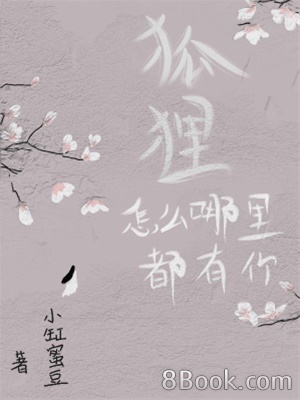 狐狸
怎么哪里
都有你
小缸蜜豆
著
8Book.com